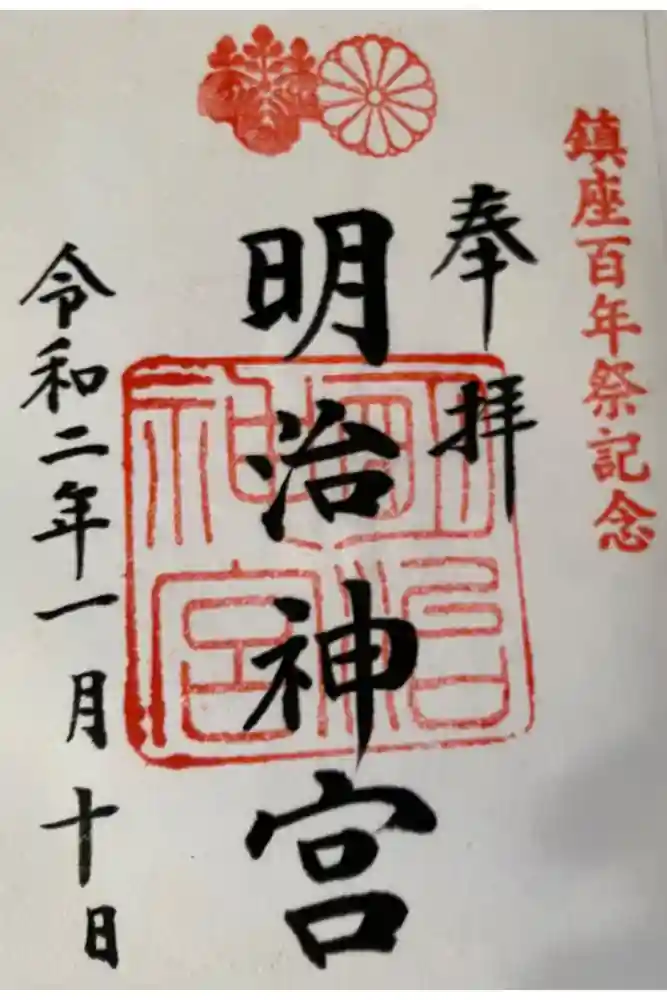 鎮座百年祭記念
奉拝
明治神宮
明治神宮
令和二年一月十日